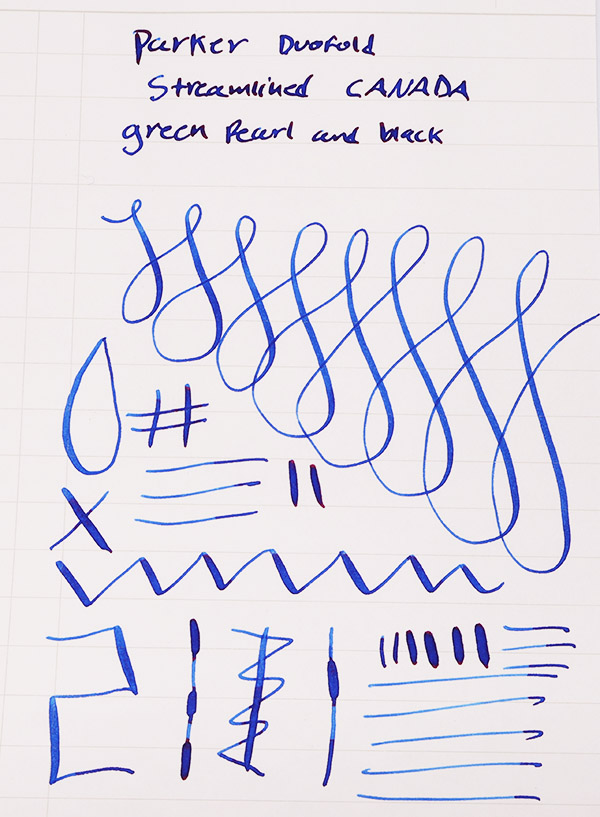 Parker Duofold
Streamlined CANADA
green Pearl and black